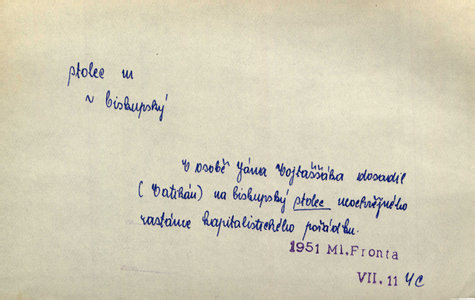 stolec m
~ biskupský
V osobě Jána Vojtaššáka dosadil
(Vatikán) na biskupský stolec neochvějného
zastánce kapitalistického pořádku.
1951 Ml. Fronta
VII. 11 4C